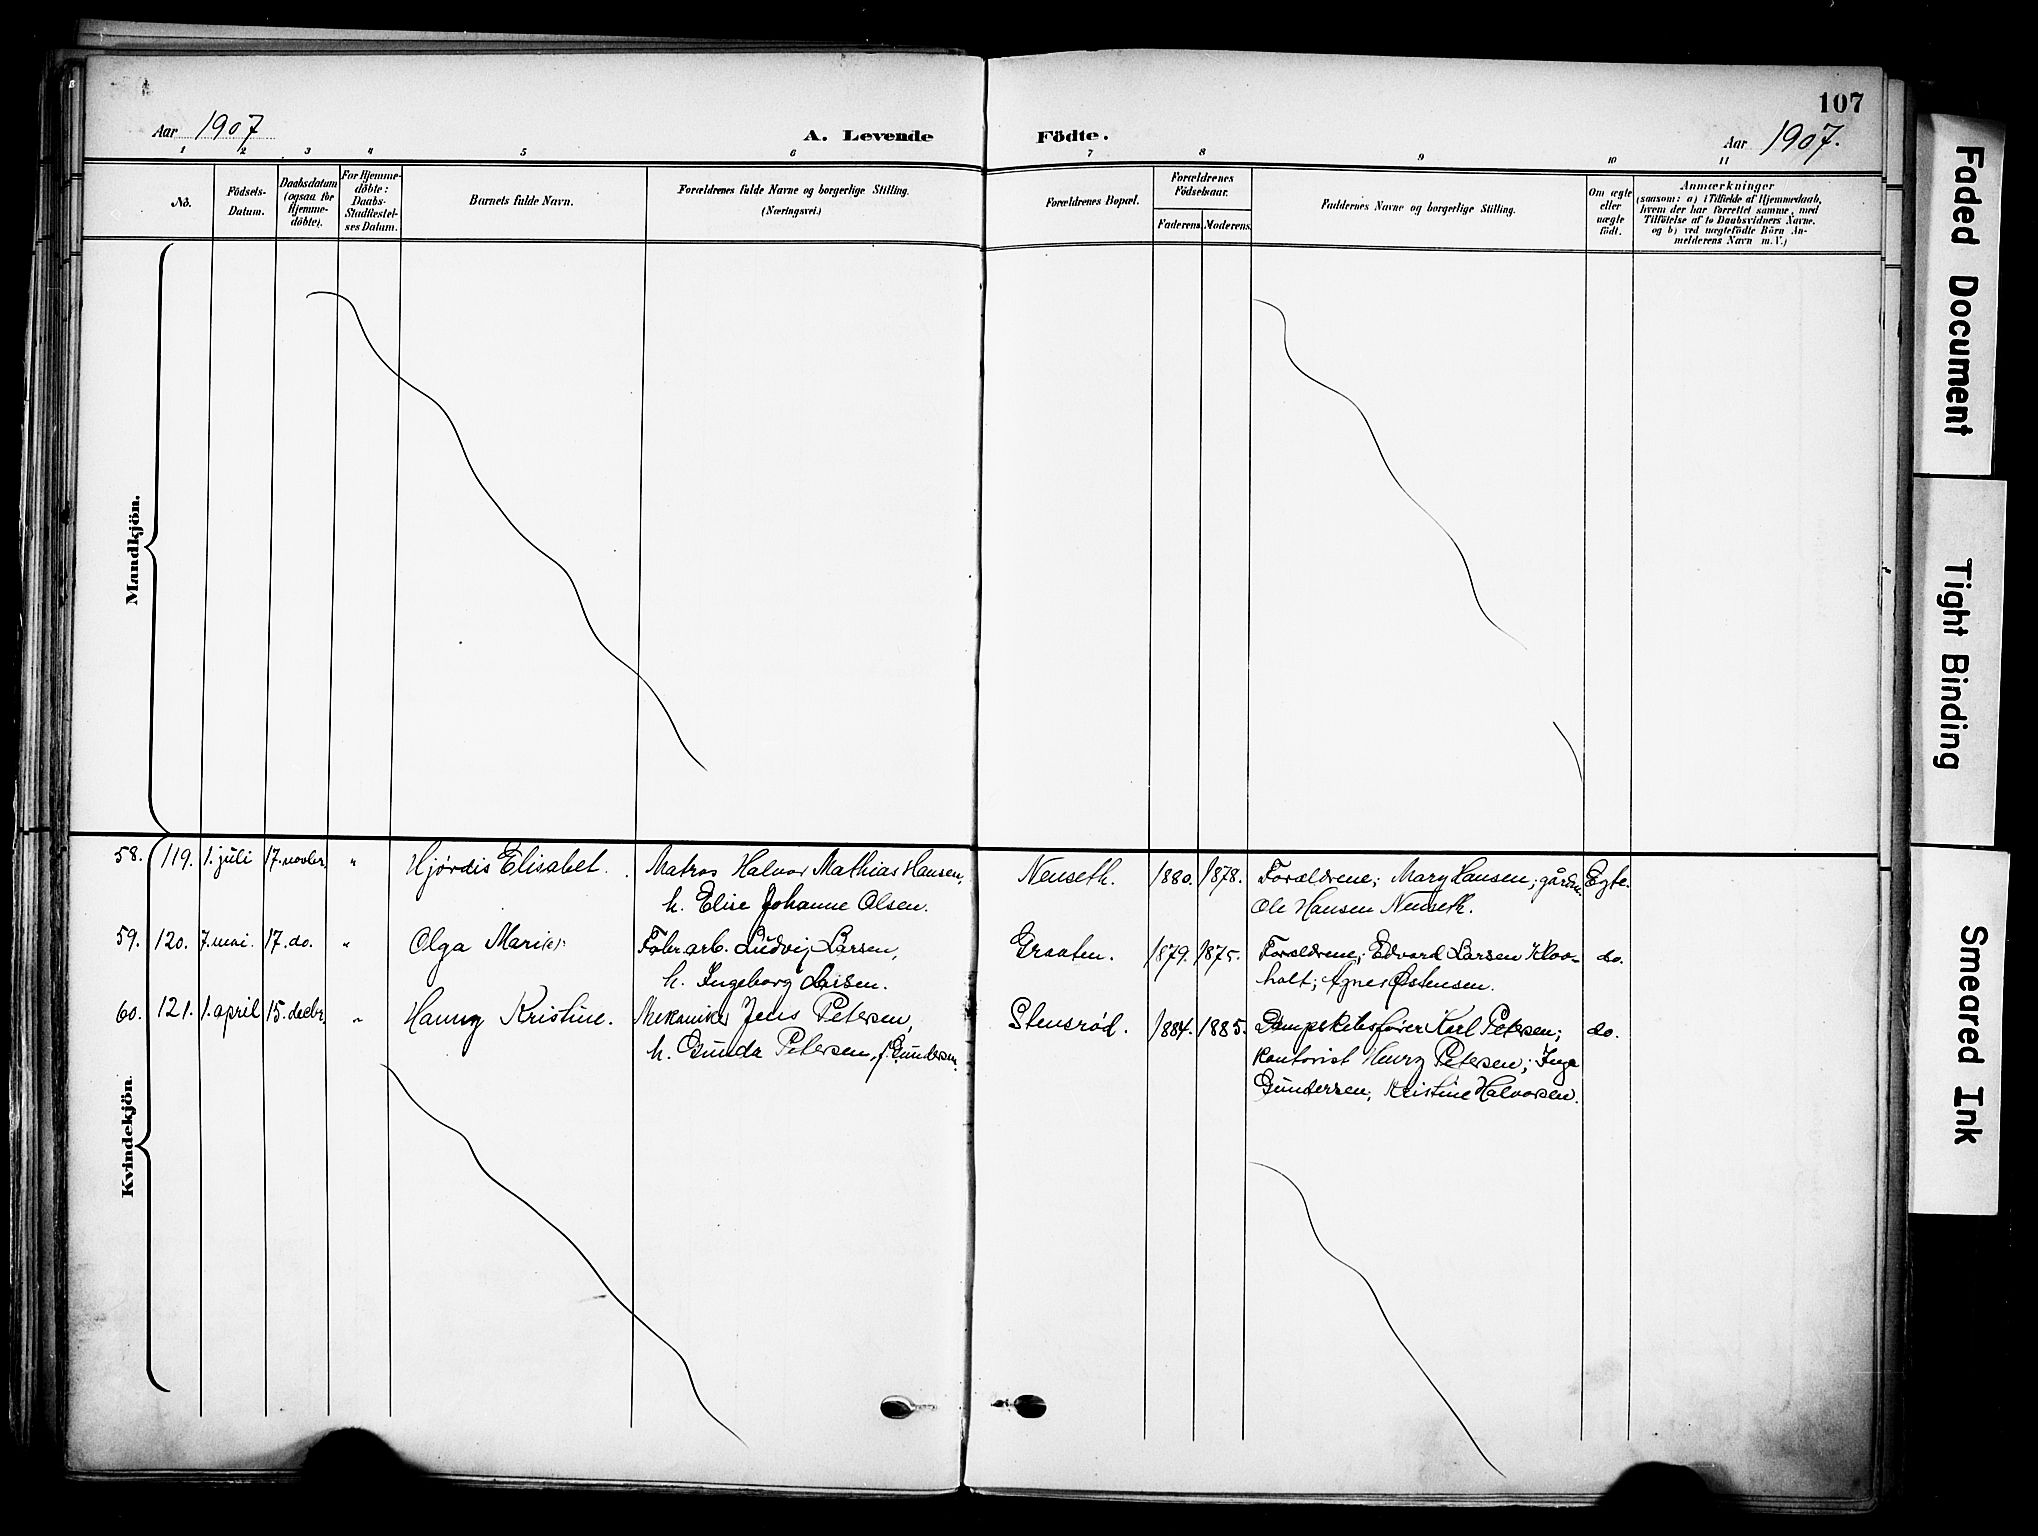 107
Aar 1907
A. Levende
Födte.
Aar 1907.
1 2 3 4 5 6 7 8 9 10 11
No.
Födsels-
Datum.
Daabsdatum
(ogsaa for
Hjemme-
döbte).
For Hjemme-
döbte:
Daabs-
Stadfæstel-
ses Datum.
Barnets fulde Navn.
Forældrenes fulde Navne og borgerlige Stilling.
(Næringsvei.)
Forældrenes Bopæl.
Forældrenes
Födselsaar.
Faderens.
Moderens.
Faddernes Navne og borgerlige Stilling.
Om ægte
eller
uægte
födt.
Anmærkninger
(saasom: a) i Tilfælde af Hjemmedaab,
hvem der har forrettet samme, med
Tilföielse af to Daabsvidners Navne.
og b) ved uægtefödte Börn An-
melderens Navn m. V.)
Mandkjön.
58. 119. 1. juli 17. novbr. " Hjördis Elisabet. Matros Halvor Mathias Hansen, Nenseth. 1880. 1878. Forældrene; Mary Hansen; gårdm. Egte.
h. Elise Johanne Olsen. Ole Hansen Nenseth.
59. 120. 7. mai. 17. do. " Olga Marie Fabr.arb. Ludvig Larsen, Graaten. 1879. 1875. Forældrene; Edvard Larsen Klov- do.
h. Ingeborg Larsen. holt; Agnes Østensen.
60. 121. 1. april 15. decbr. " Hanny Kristine. Mekaniker Jens Petersen, Stensrød. 1884. 1885. Dampskibsfører Karl Petersen; do.
h. Gunda Petersen, f. Gundersen. kontorist Henry Petersen; Inga
Gundersen, Kristine Halvorsen.
Kvindekjön.
Faded Document
Tight Binding
Smeared Ink